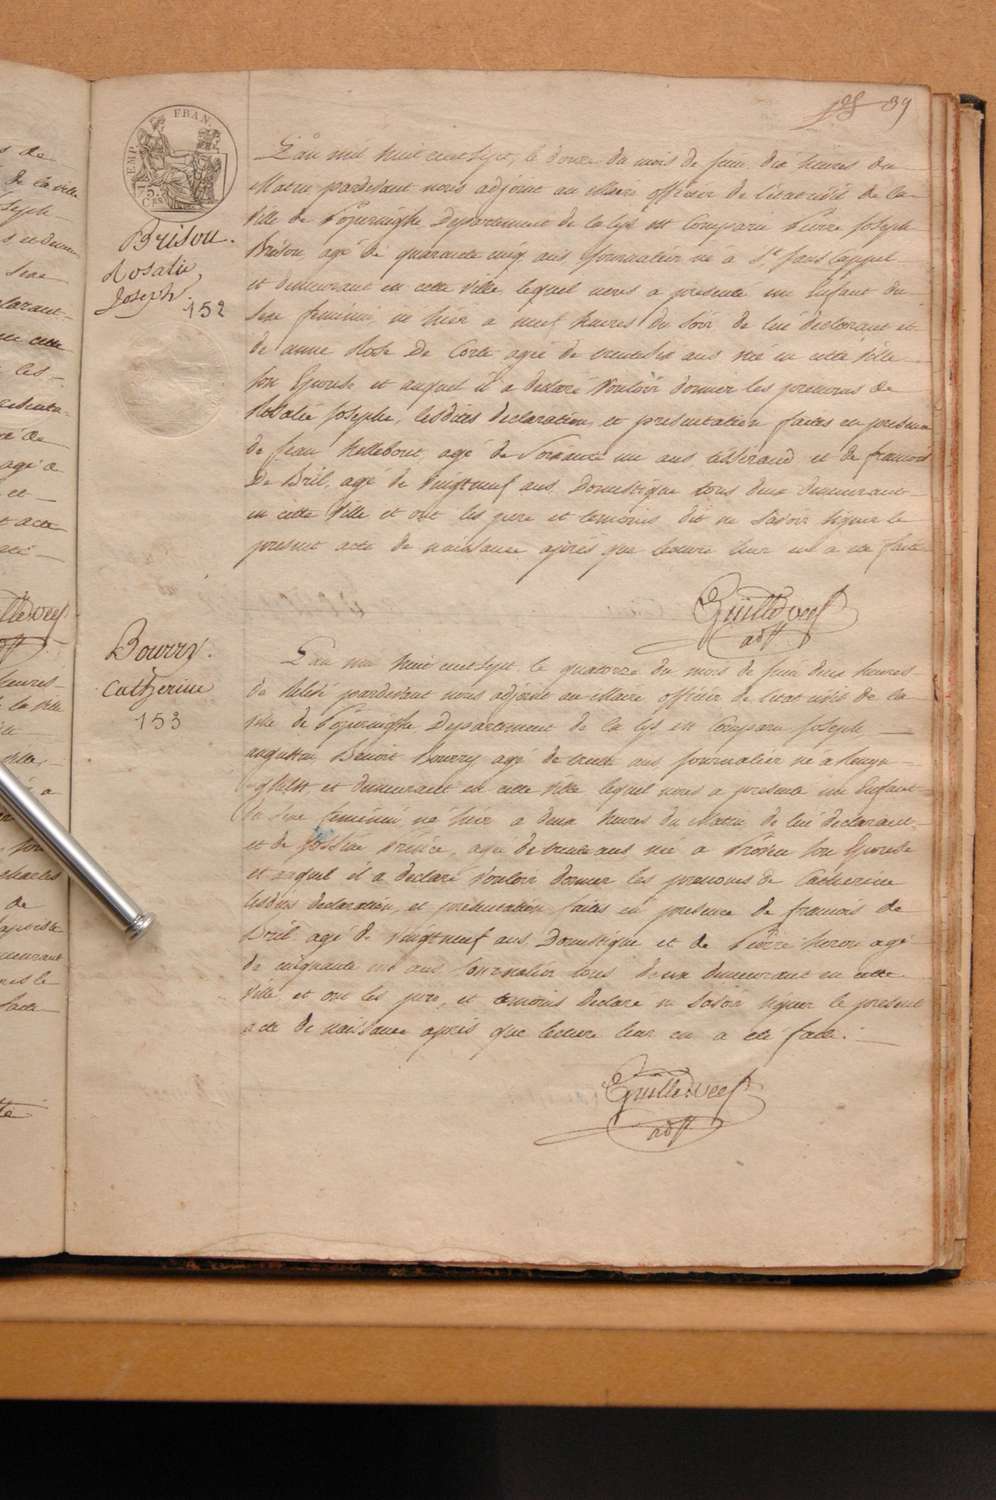 39
EMP. FRAN.
Brison
Rosalie
Joseph
152
L'an mil huit cent sept, le douze du mois de juin dix heures du
Matin pardevant nous adjoint au Maire officier de l'état civil de la
Ville de Poperinghe Departement de la Lys est Comparu Pierre Joseph
Brison, agé de quarante cinq ans Journalier né a St Jans Cappel
et demeurant en cette ville lequel nous a presenté un Enfant du
sexe feminin, né hier a neuf heures du soir de lui declarant et
de anne Rose De Corte agée de trentesix ans née en cette ville
son Epouse et auquel il a declaré vouloir donner les prenoms de
Rosalie Josephe, lesdites declaration, et presentation faites en presence
de Jean Hellebout agé de Soixante un ans et de francois
De Bril, agé de vingtneuf ans Domestique tous deux demeurant
en cette ville et ont les pere et temoins dit ne savoir signer le
present acte de naissance après que lecture leur en a été faite
Guilledveef
adjt
Bourry
Catherine
153
L'an mil huit cent sept, le quatorze du mois de juin deux heures
de Relevé pardevant nous adjoint au Maire officier de l'etat civil de la
ville de Poperinghe Departement de la Lys est Comparu Joseph
augustin Benoit Bourry agé de trente ans Journalier né a Renyn-
-ghelst et demeurant en cette ville lequel nous a presenté un Enfant
du sexe feminin, né hier a deux heures du Matin de lui declarant
et de agée de trente ans née a Proven son Epouse
et auquel il a declaré vouloir donner les prenoms de Catherine
lesdites declaration, et presentation faites en presence de francois de
Bril agé de vingtneuf ans Domestique et de Pierre heron agé
de cinquante ans Journalier tous deux demeurant en cette
ville, et ont les pere, et temoins declaré ne savoir signer le present
acte de naissance après que lecture leur en a été faite.
Guilledveef
adjt